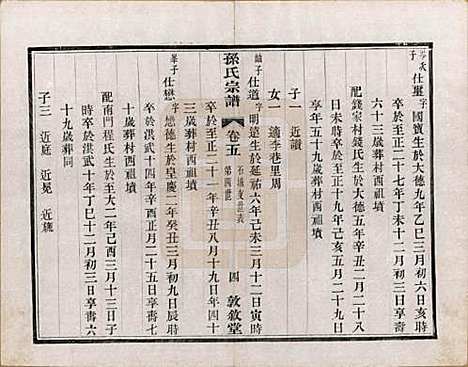 岑次子 仕璽 字國寶生於大德九年乙巳三月初六日亥時
卒於至正二十七年丁未十二月初三日享壽
六十三歲葬村西祖墳
配錢家村錢氏生於大德五年辛丑二月二十八
日未時卒於至正十九年己亥五月二十九日
享年五十九歲葬村西祖墳
子一 近讃
女一 適李巷里周
子 仕道 字明遠生於延祐六年己未三月十二日寅時
孫氏宗譜 卷五 第四世 四 敦敘堂
卒於至正二十一年辛丑八月十九日年四十
歲葬村西祖墳
子 仕懋 字懋德生於皇慶二年癸丑三月初九日辰時
卒於洪武十四年辛酉正月二十五日享壽六
十歲葬村西祖墳
配南門程氏生於至大二年己酉三月十三日子
時卒於洪武十年丁巳十二月初三日享壽六
十九歲葬同
子三 近庭 近冕